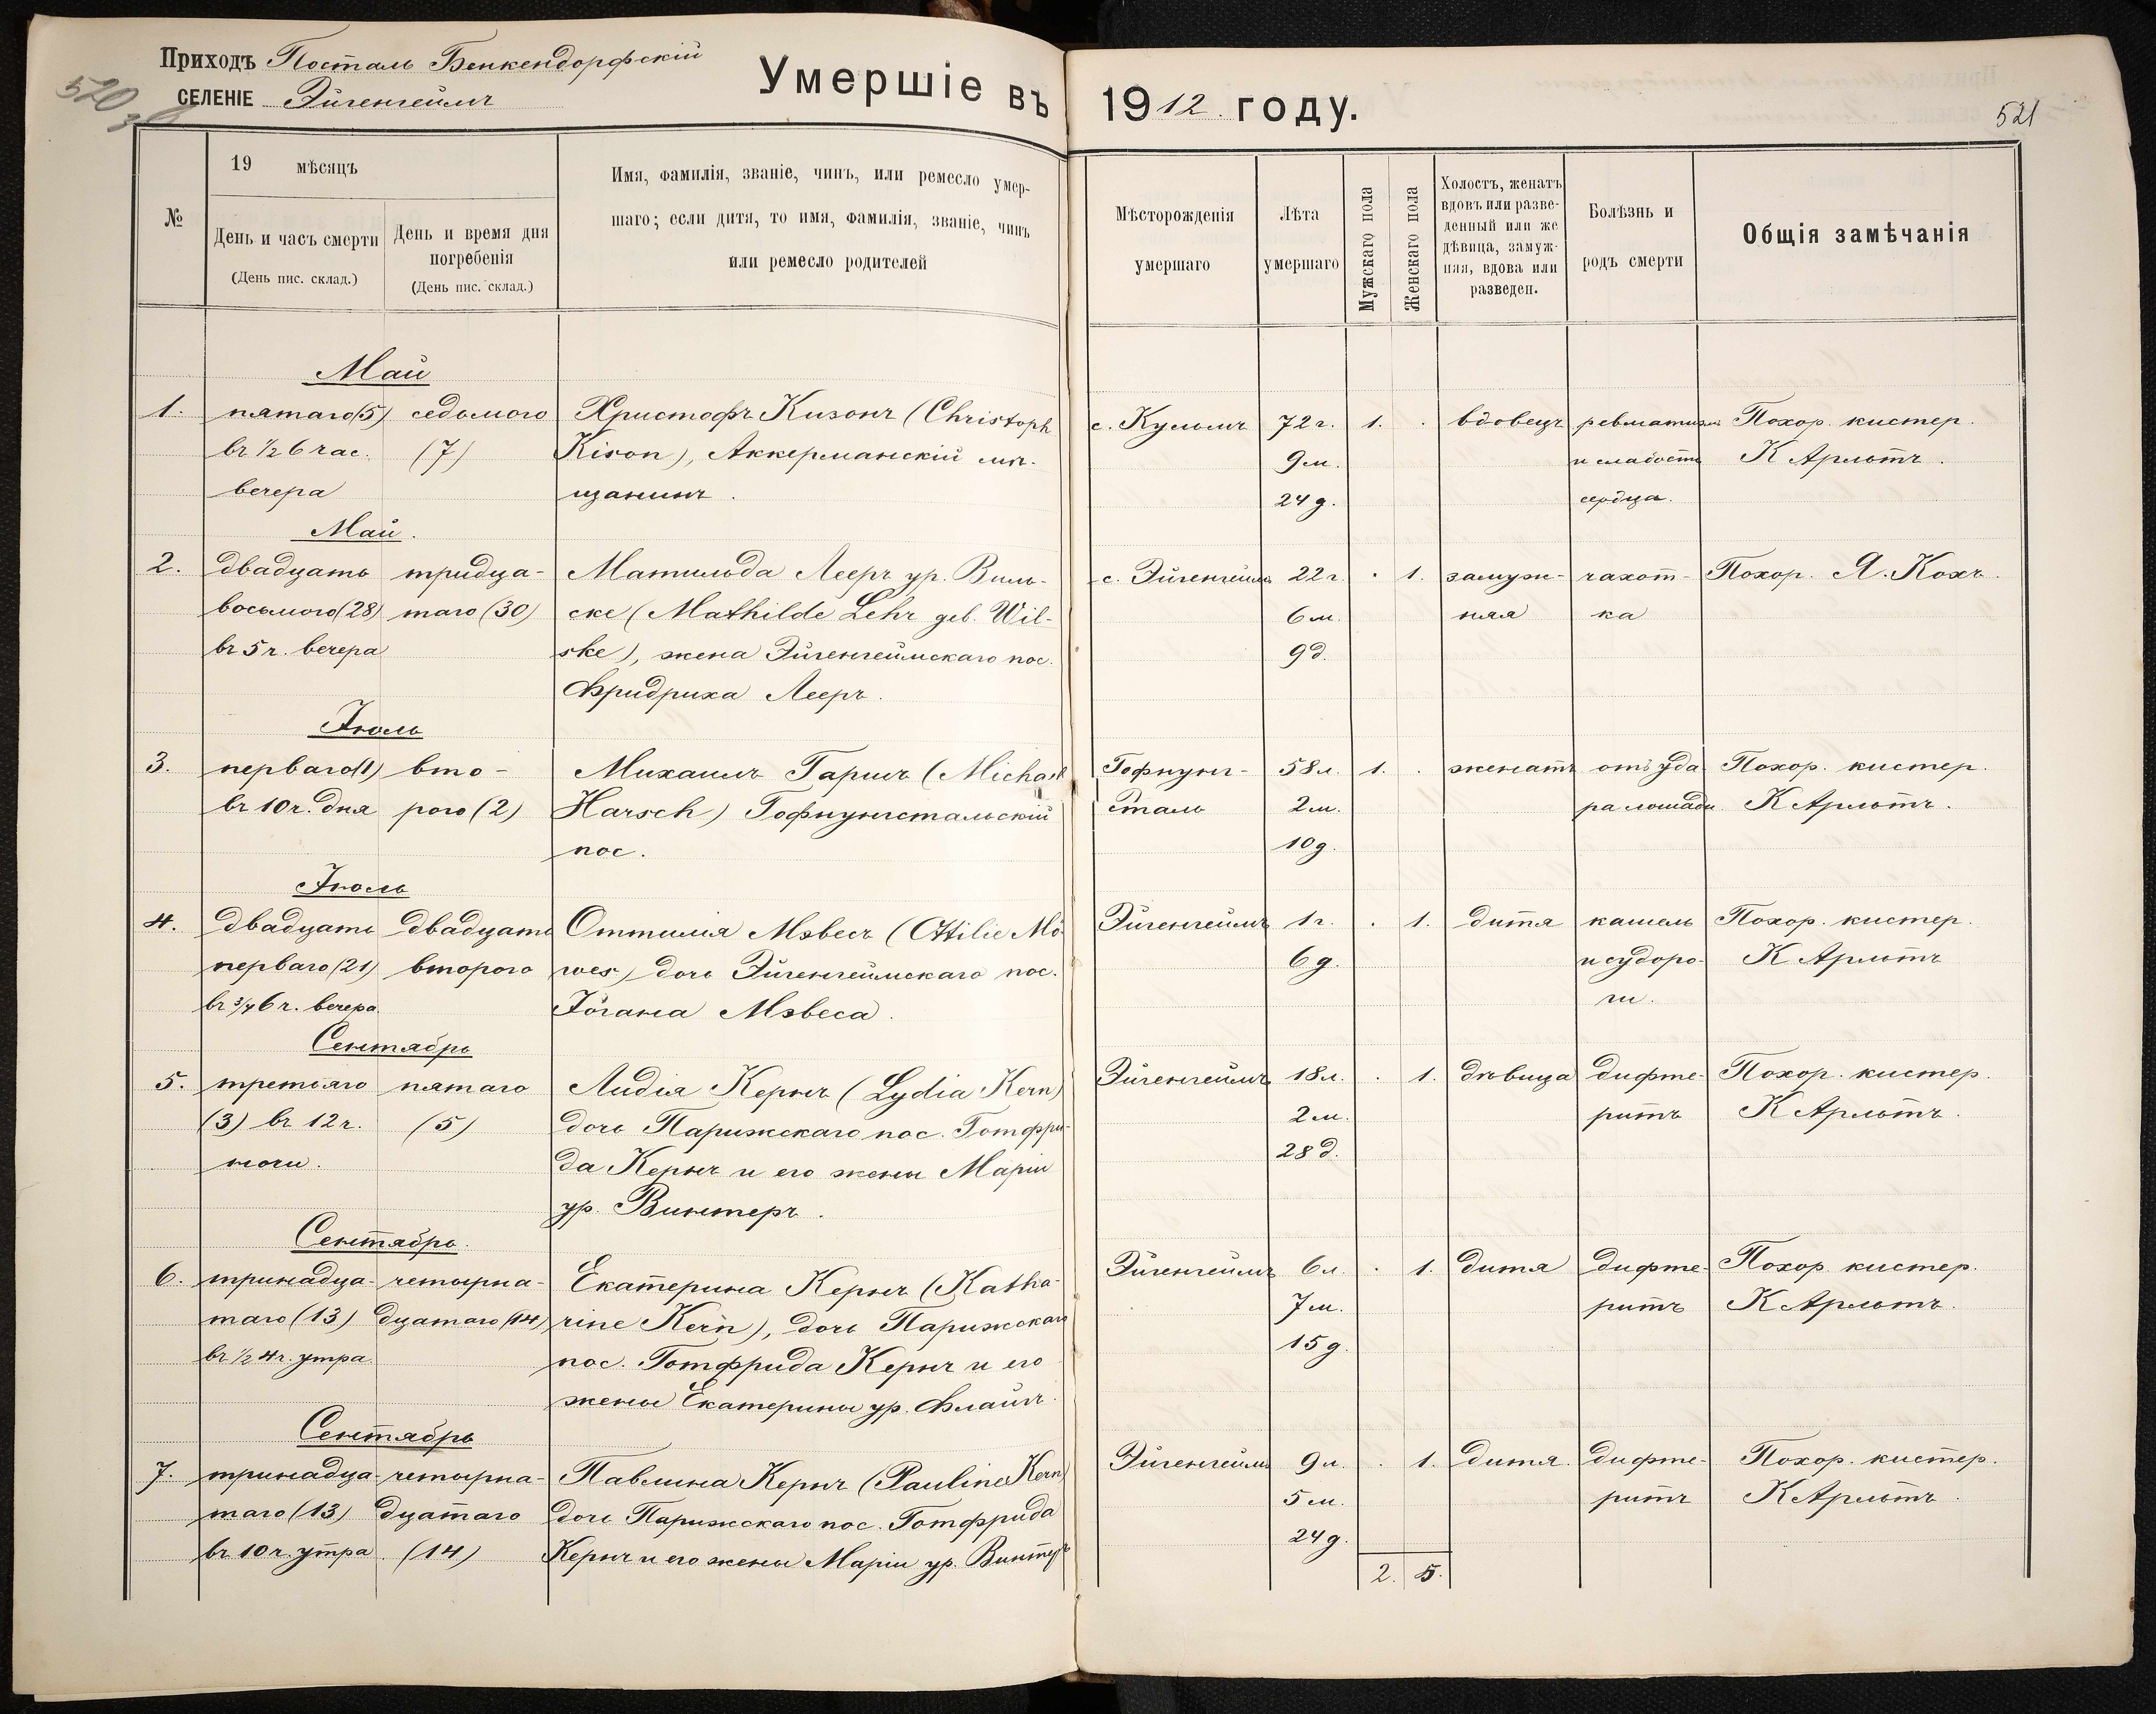 Приходъ Постталь Бенкендорфскій
СЕЛЕНІЕ Эйгенгеймъ
520
Умершіе въ 1912 году.
521
№
19 мѣсяцъ
День и часъ смерти
(День пис. склад.)
День и время дня
погребенія
(День пис. склад.)
Имя, фамилія, званіе, чинъ, или ремесло умер-
шаго; если дитя, то имя, фамилія, званіе, чинъ
или ремесло родителей
Мѣсторожденія
умершаго
Лѣта
умершаго
Мужскаго пола
Женскаго пола
Холостъ, женатъ
вдовъ или разве-
денный или же
дѣвица, замуж-
няя, вдова или
разведен.
Болѣзнь и
родъ смерти
Общія замѣчанія
Май
1. пятаго (5) седьмого Христофъ Кизонъ (Christoph с. Кульмъ 72 г. 1. . вдовецъ ревматизмъ Похор. кистер.
въ ½ 6 час. (7) Kison), Аккерманскій мѣ- 9 м. и слабость К Арльтъ.
вечера щанинъ. 24 д. сердца.
Май.
2. двадцать тридца- Матильда Лееръ ур. Виль- с. Эйгенгеймъ 22 г. . 1. замуж- чахот- Похор. Я. Кохъ.
восьмого (28) таго (30) ске (Mathilde Lehr geb. Wil- 6 м. няя ка
въ 5 ч. вечера ske), жена Эйгенгеймскаго пос. 9 д.
Фридриха Лееръ.
Іюль
3. перваго (1) вто- Михаилъ Гаршъ (Michael Гофнунгс- 58 л. 1. . женатъ отъ уда Похор. кистер.
въ 10 ч. дня рого (2) Harsch) Гофнунгстальскій таль 2 м. ра лошади К Арльтъ.
пос. 10 д.
Іюль
4. двадцать двадцать Оттилія Мэвесъ (Ottilie Mö- Эйгенгеймъ 1 г. . 1. дитя кашель Похор. кистер.
перваго (21) второго wes) дочь Эйгенгеймскаго пос. 6 д. и судоро- К Арльтъ
въ ¾ 6 ч. вечера. Іогана Мэвеса. ги.
Сентябрь
5. третьяго пятаго Лидія Кернъ (Lydia Kern) Эйгенгеймъ 18 л. . 1. дѣвица дифте- Похор. кистер.
(3) въ 12 ч. (5) дочь Парижскаго пос. Готфри- 2 м. ритъ К Арльтъ.
ночи. да Кернъ и его жены Маріи 28 д.
ур. Винтеръ.
Сентябрь.
6. тринадца- четырна- Екатерина Кернъ (Katha- Эйгенгеймъ 6 л. . 1. дитя дифте- Похор кистер.
таго (13) дцатаго (14) rine Kern), дочь Парижскаго 7 м. ритъ К Арльтъ.
въ ½ 4 ч. утра. пос. Готфрида Кернъ и его 15 д.
жены Екатерины ур. Флайгъ.
Сентябрь
7. тринадца- четырна- Павлина Кернъ (Pauline Kern) Эйгенгеймъ 9 л. . 1. дитя. дифте- Похор. кистер.
таго (13) дцатаго дочь Парижскаго пос. Готфрида 5 м. ритъ К Арльтъ.
въ 10 ч. утра. (14) Кернъ и его жены Маріи ур. Винтеръ 24 д.
2. 5.